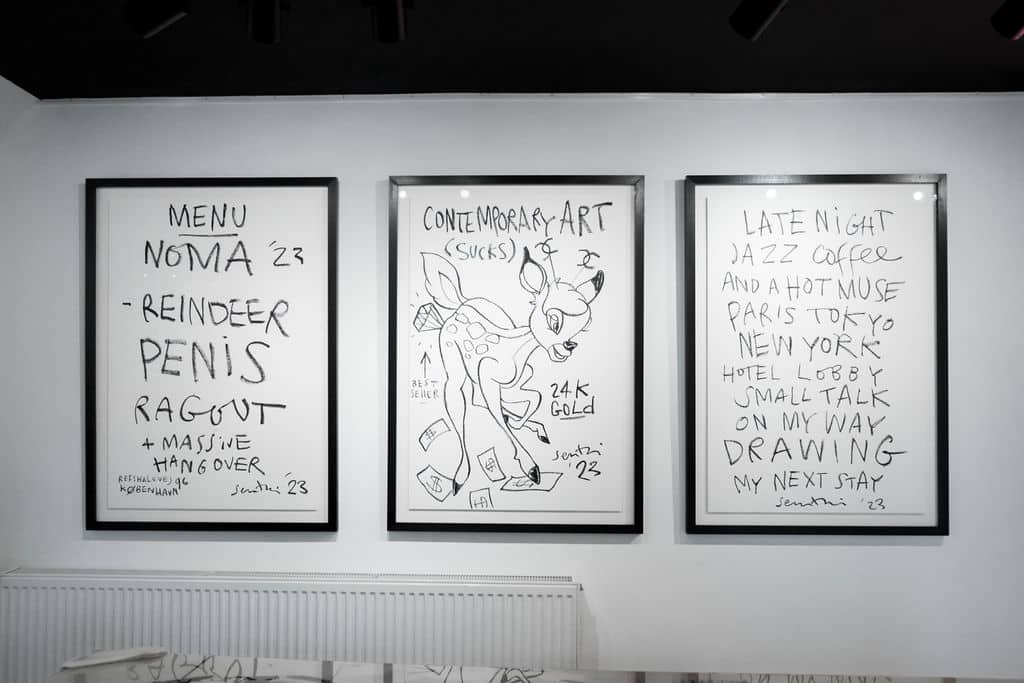 MENU
NOMA '23
-REINDEER
PENIS
RAGOUT
+ MASSIVE
HANGOVER
96
KØBENHAVN
'23
CONTEMPORARY ART
(SUCKS)
BEST
SELLER
24K
GOLD
$
$
$
'23
LATE NIGHT
JAZZ COFFEE
AND A HOT MUSE
PARIS TOKYO
NEW YORK
HOTEL LOBBY
SMALL TALK
ON MY WAY
DRAWING
MY NEXT STAY
'23